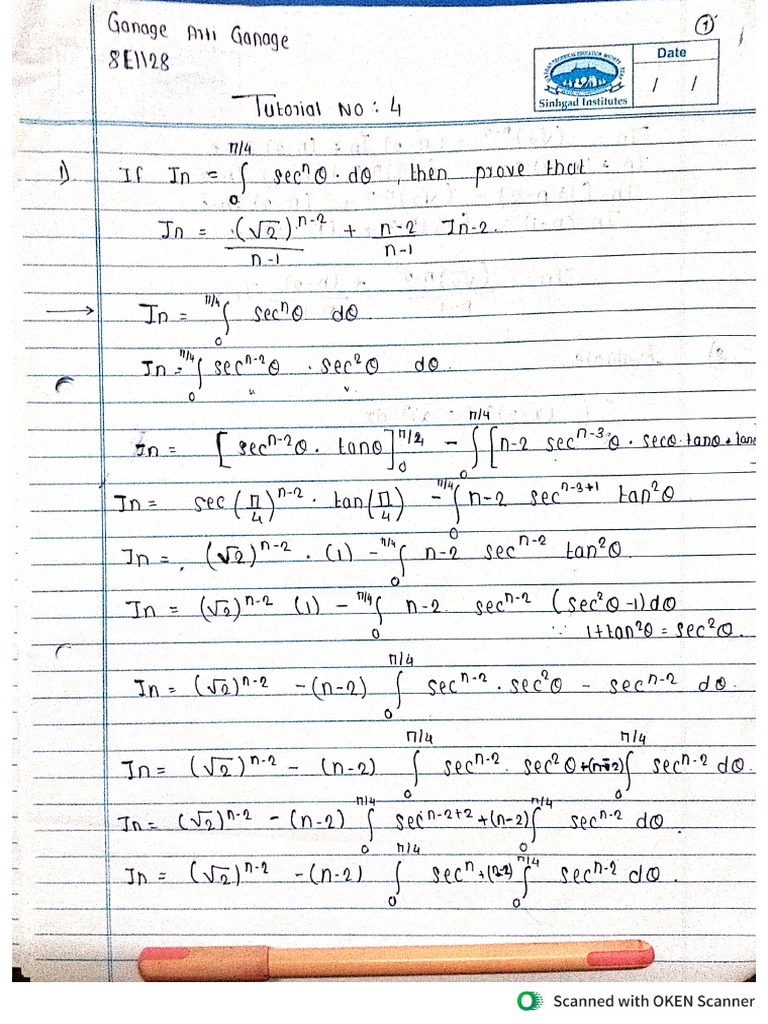 Ganage Arti Ganage
①
SE1128
Date
/ /
Sinhgad Institutes
Tutorial No : 4
1) If In = ∫₀^π/4 secⁿθ · dθ , then prove that :
In = (√2)^n-2 / n-1 + n-2 / n-1 In-2.
→ In = ∫₀^π/4 secⁿθ dθ
In = ∫₀^π/4 sec^n-2 θ · sec²θ dθ.
In = [ sec^n-2 θ · tanθ ]₀^π/2 - ∫₀^π/4 [n-2 sec^n-3 θ · secθ · tanθ · tanθ
In = sec(π/4)^n-2 · tan(π/4) - ∫₀^π/4 n-2 sec^n-3+1 tan²θ
In = (√2)^n-2 · (1) - ∫₀^π/4 n-2 sec^n-2 tan²θ.
In = (√2)^n-2 (1) - ∫₀^π/4 n-2 sec^n-2 (sec²θ -1)dθ
∵ 1+tan²θ = sec²θ.
In = (√2)^n-2 - (n-2) ∫₀^π/4 sec^n-2 · sec²θ - sec^n-2 dθ.
In = (√2)^n-2 - (n-2) ∫₀^π/4 sec^n-2 · sec²θ +(n-2) ∫₀^π/4 sec^n-2 dθ.
In = (√2)^n-2 - (n-2) ∫₀^π/4 sec^n-2+2 +(n-2) ∫₀^π/4 sec^n-2 dθ.
In = (√2)^n-2 - (n-2) ∫₀^π/4 secⁿ +(n-2) ∫₀^π/4 sec^n-2 dθ.
Scanned with OKEN Scanner